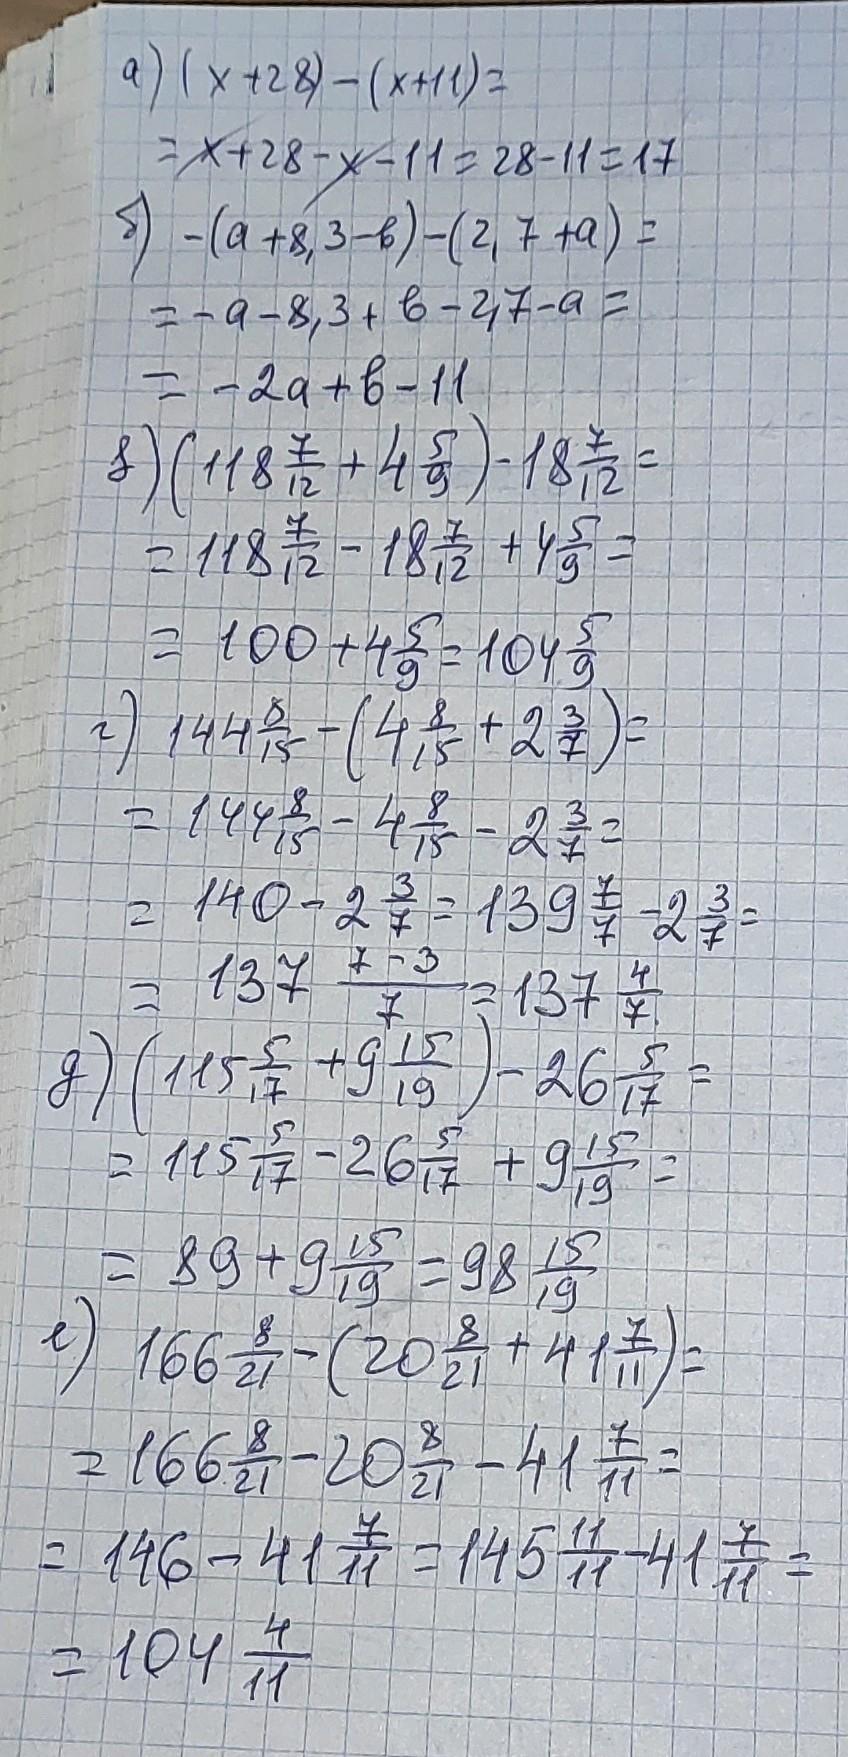 а) (x+28)-(x+11)=
=x+28-x-11=28-11=17
б) -(a+8,3-в)-(2,7+a)=
=-a-8,3+в-2,7-a=
=-2a+в-11
в) (118 7/12+4 5/9)-18 7/12=
=118 7/12-18 7/12+4 5/9=
=100+4 5/9=104 5/9
г) 144 8/15-(4 8/15+2 3/7)=
=144 8/15-4 8/15-2 3/7=
=140-2 3/7=139 7/7-2 3/7=
=137 (7-3)/7=137 4/7.
д) (115 5/17+9 15/19)-26 5/17=
=115 5/17-26 5/17+9 15/19=
=89+9 15/19=98 15/19
е) 166 8/21-(20 8/21+41 7/11)=
=166 8/21-20 8/21-41 7/11=
=146-41 7/11=145 11/11-41 7/11=
=104 4/11